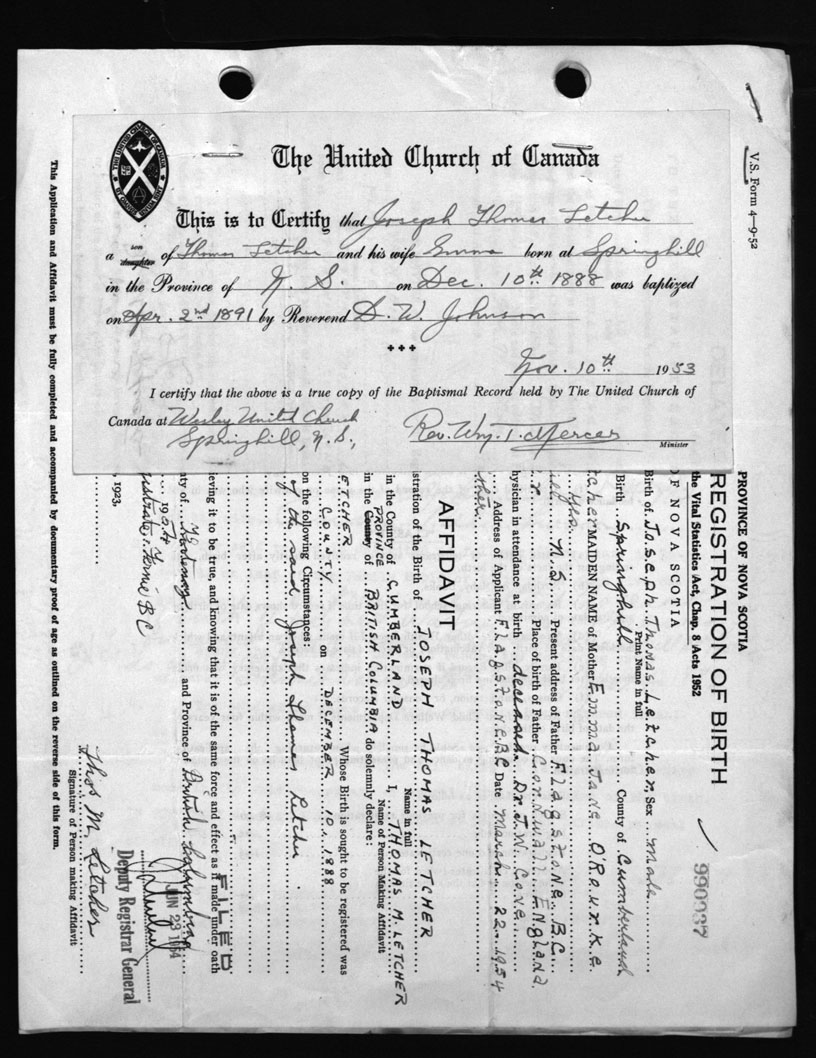 The United Church of Canada
This is to Certify that Joseph Thomas Letcher
a son daughter of Thomas Letcher and his wife Emma born at Springhill
in the Province of N. S. on Dec. 10th 1888 was baptized
on Apr. 2nd 1891 by Reverend D. W. Johnson
Nov. 10th 1953
I certify that the above is a true copy of the Baptismal Record held by The United Church of
Canada at Wesley United Church Rev. Wm. T. Mercer
Springhill, N. S., Minister
V.S. Form 4—9-52
PROVINCE OF NOVA SCOTIA
REGISTRATION OF BIRTH
990037
the Vital Statistics Act, Chap. 8 Acts 1952
OF NOVA SCOTIA
Birth of Joseph Thomas Letcher Sex male
Print Name in full
Birth Springhill County of Cumberland
tcher MAIDEN NAME of Mother Emma Jane O'Rourke
N. S Present address of Father Flagstone B.C
Place of birth of Father Cornwall England
hysician in attendance at birth deceased Dr. J. W. Cove
Address of Applicant Flagstone BC Date March 22 1954
AFFIDAVIT
stration of the Birth of JOSEPH THOMAS LETCHER
Name in full
in the County of CUMBERLAND I, THOMAS M. LETCHER
Name of Person Making Affidavit
in the County PROVINCE of BRITISH COLUMBIA do solemnly declare:
ETCHER Whose Birth is sought to be registered was
COUNTY on DECEMBER 10, 1888
on the following Circumstances:
of the said Joseph Thomas Letcher.
FILED
ieving it to be true, and knowing that it is of the same force and effect as if made under oath
nty of Kootenay and Province of British Columbia
1954
JUN 23 1954
Fernie BC
Deputy Registrar General
, 1923.
Thos M. Letcher
Signature of Person making Affidavit
This Application and Affidavit must be fully completed and accompanied by documentary proof of age as outlined on the reverse side of this form.